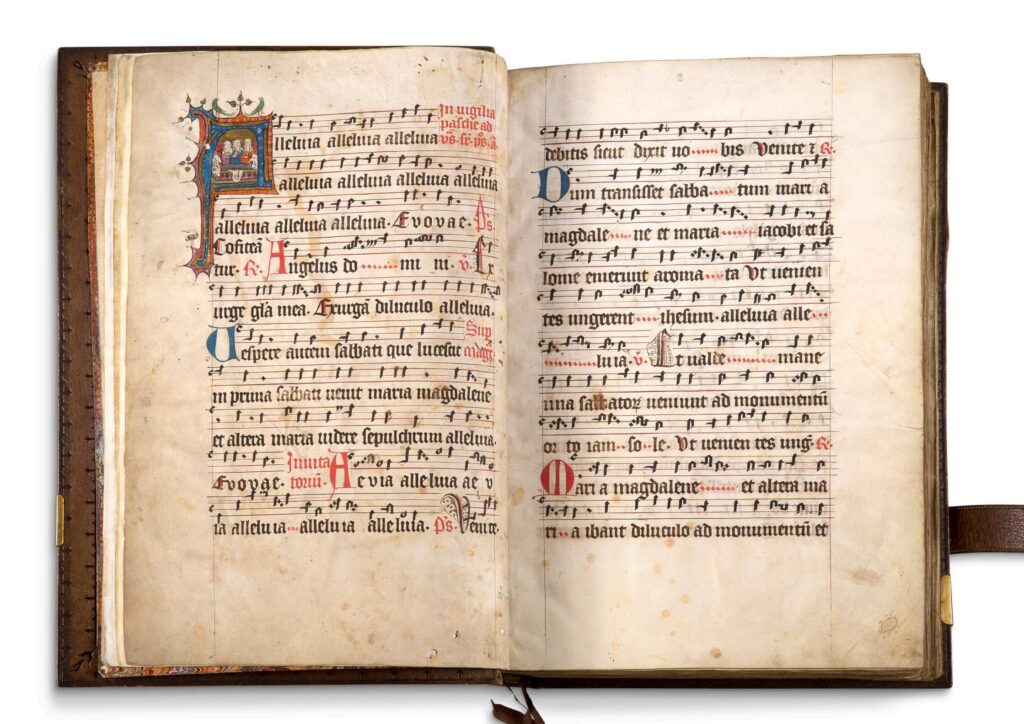 In vigilia
pasche ad
vs. sr. ps. a.
Alleluia alleluia alleluia
alleluia alleluia alleluia alleluia
alleluia alleluia alleluia. Evovae. Ps.
Cōfiteā
tur. R. Angelus do mi ni. v. Ex
urge glā mea. Exurgā diluculo alleluia.
Vespere autem sabbati que lucescit Sup magͭ
in prima sabbati venit maria magdalene
et altera maria videre sepulchrum alleluia.
Evovae. Invita
toriū. Aevia alleluia ae v
ia alleluia alleluia alleluia. Ps. Venite.
2
debitis sicut dixit vo bis Venite ⁊ R.
Dum transisset sabba tum mari a
magdale ne et maria iacobi et sa
lome emerunt aroma ta Vt venien
tes ungerent ihesum. alleluia alle
luia. v. Et valde mane
una sabbatoꝝ veniunt ad monumentū
or to iam so le. Vt venien tes ung. R.
Mari a magdalene et altera ma
ri a ibant diluculo ad monumentū et